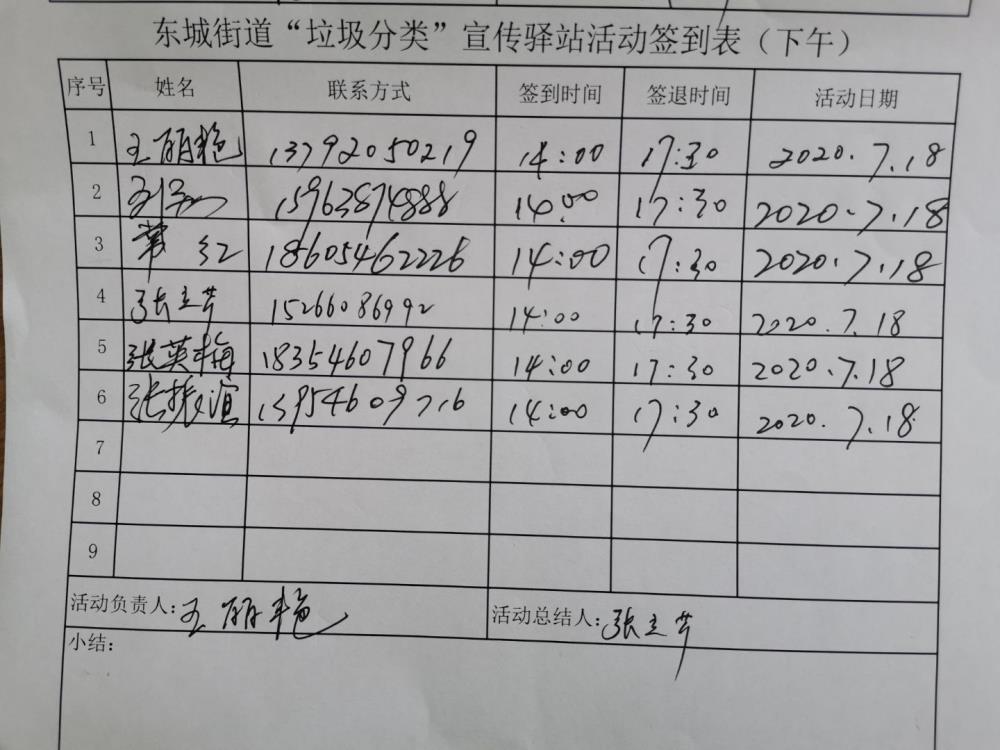 东城街道“垃圾分类”宣传驿站活动签到表（下午）
序号 姓名 联系方式 签到时间 签退时间 活动日期
1 王丽艳 13792050219 14:00 17:30 2020.7.18
2 15963874888 14:00 17:30 2020.7.18
3 红 18605462226 14:00 17:30 2020.7.18
4 张立芹 15266086992 14:00 17:30 2020.7.18
5 张英梅 18354607966 14:00 17:30 2020.7.18
6 张振谊 13954609716 14:00 17:30 2020.7.18
7
8
9
活动负责人：王丽艳 活动总结人：张立芹
小结：